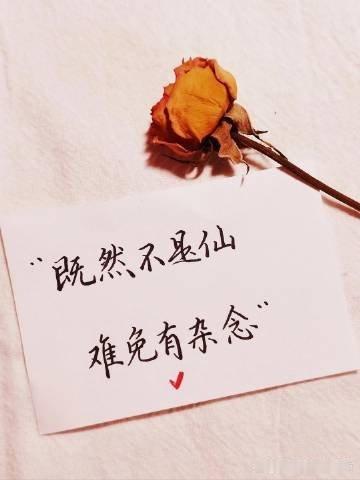 “既然不是仙
难免有杂念”